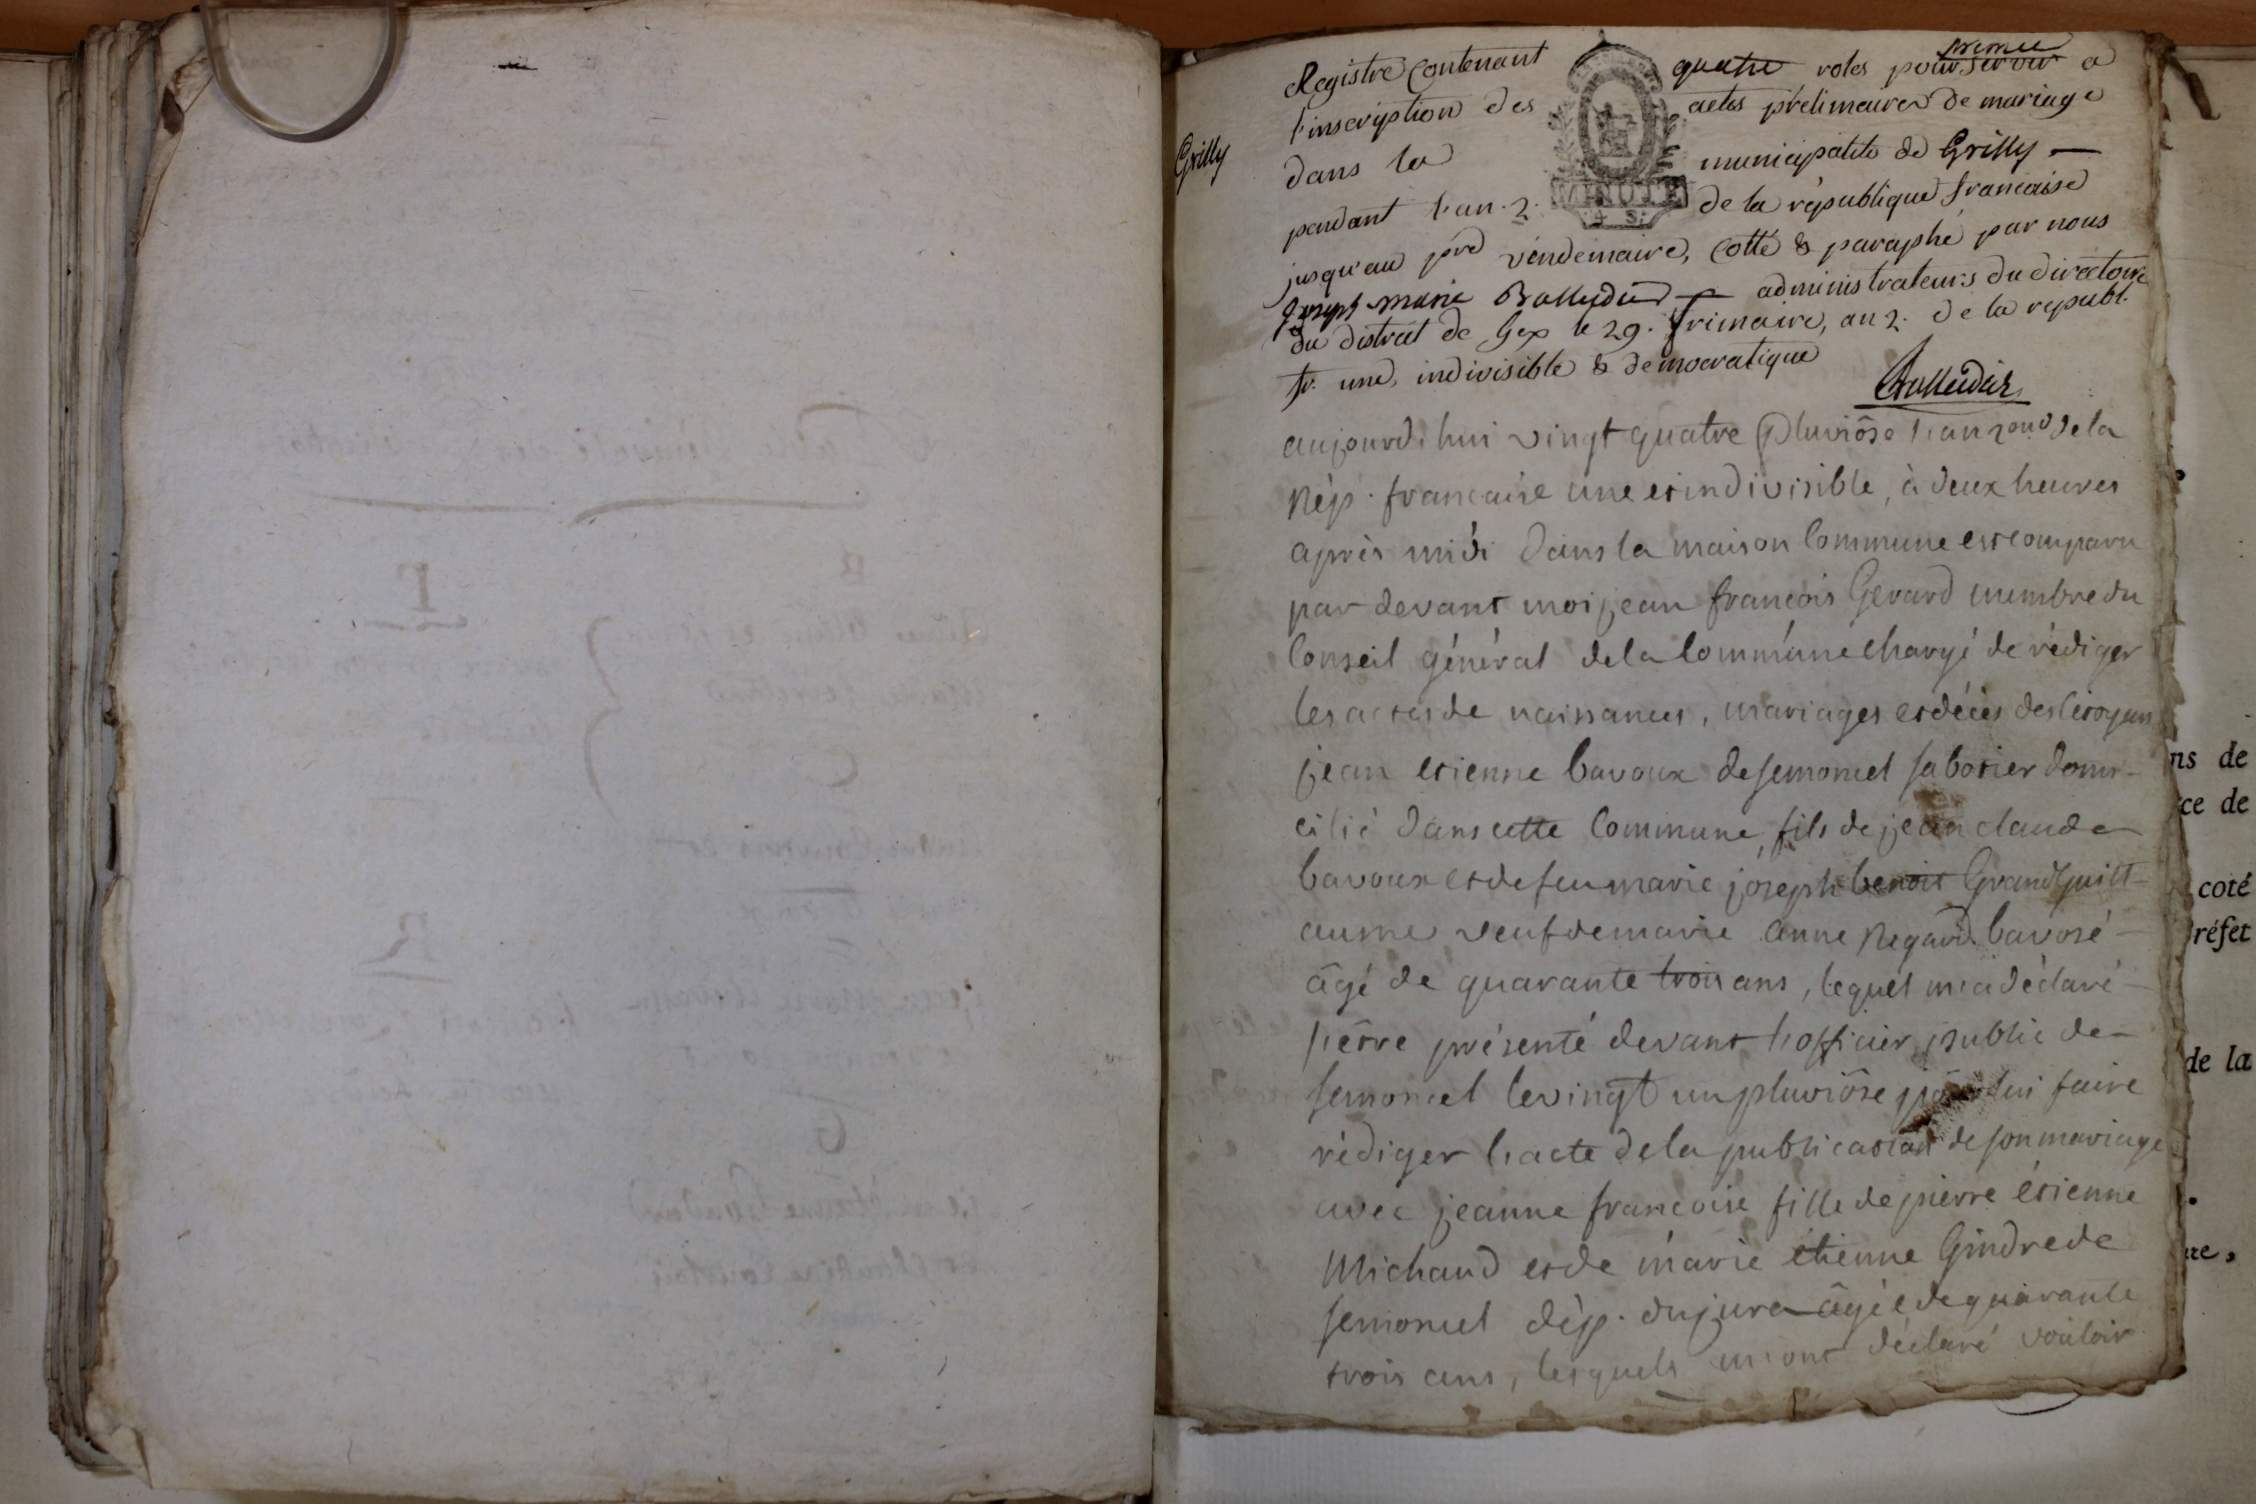 premier
Registre Contenant quatre roles pour servir a
l'inscription des actes prélimeaires de mariage
Grilly
dans la municipalité de Grilly —
pendant l'an. 2. de la république francaise
MINUTE
4 S.
jusqu'au pred vendemaire, Cotté & paraphé par nous
Joseph Marie Balleydier — administrateurs du directoire
du district de Gex le 29. frimaire, an 2. de la republ.
fr. une, indivisible & democratique
Balleidier
aujourd'hui vingt quatre Pluviôse l'an 2ond de la
Rép. francaise une et indivisible, à deux heures
après midi dans la maison Commune est comparu
par devant moi jean francois Gerard membre du
Conseil général de la Commune chargé de rédiger
les actes de naissances, mariages et décès des citoyens
jean etienne bavoux de semoncel sabotier domi-
cilié dans cette Commune, fils de jean claude
bavoux et de feu marie joseph benoit Grandguill-
aume veuf de marie anne Regard bavosé -
âgé de quarante trois ans, lequel m'a déclaré -
s'etre présenté devant l'officier public de -
semoncel le vingt un pluviôse pour lui faire
rédiger l'acte de la publication de son mariage
avec jeanne francoise fille de pierre étienne
Michaud et de marie étienne Gindre de
semoncel dép. du jura âgée de quarante
trois ans, lesquels m'ont déclaré vouloir
ns de
ce de
coté
réfet
de la